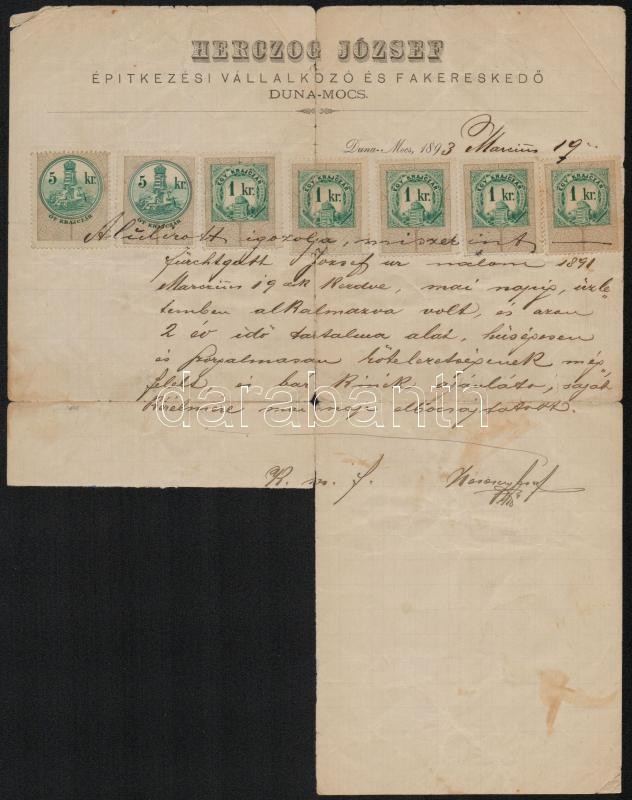 HERCZOG JÓZSEF
ÉPITKEZÉSI VÁLLALKOZÓ ÉS FAKERESKEDŐ
DUNA-MOCS.
Duna-Mocs, 1893 Marczius 19
5 kr. ÖT KRAJCZÁR
5 kr. ÖT KRAJCZÁR
EGY KRAJCZÁR 1 kr.
EGY KRAJCZÁR 1 kr.
EGY KRAJCZÁR 1 kr.
EGY KRAJCZÁR 1 kr.
EGY KRAJCZÁR 1 kr.
Alulirott igazolja, miszerint
fürchtgott József ur nálam 1891
Marczius 19 ак kezdve, mai napig, üzle
temben alkalmazva volt, és azon
2 év idő tartalma alat, hüségesen
és szorgalmasan kötelezetségének meg
felelt, és bár kinek
mai nap elbocsájtatott.
darabanth
K. m. f.